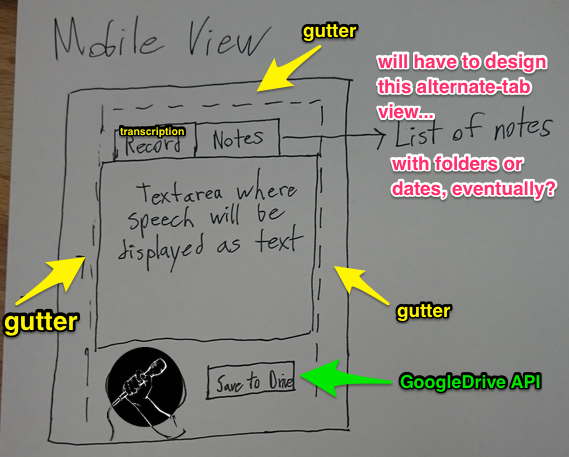 Mobile View
gutter
will have to design
this alternate-tab
view...
transcription
Record
Notes
List of notes
with folders or
dates, eventually?
Textarea where
speech will be
displayed as text
gutter
gutter
Save to Drive
GoogleDrive API